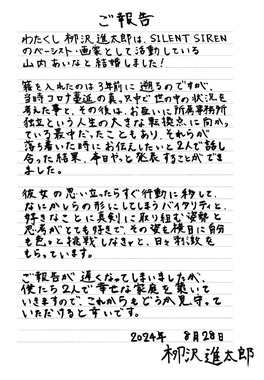 ご報告
わたくし柳沢進太郎は、SILENT SIREN
のベーシスト・画家として活動している
山内あいなと結婚しました!
籍を入れたのは3年前に遡るのですが、
当時コロナ蔓延の真っ只中で世の中の状況を
考えた事と、その後は、お互いに所属事務所
独立という人生の大きな転換点に向かっ
ている最中だったこともあり、それらが
落ち着いた時にお伝えしたいと2人で話し
合った結果、本日やっと発表することができ
ました。
彼女の思い立ったらすぐ行動に移して、
なにかしらの形にしてしまうバイタリティと、
好きなことに真剣に取り組む姿勢と
思考がとても好きで、その姿を横目に自分
も色々と挑戦しなきゃと、日々刺激を
もらっています。
ご報告が遅くなってしまいましたが、
僕たち2人で幸せな家庭を築いて
いきますので、これからもどうか見守って
いただけると幸いです。
2024年 8月28日
柳沢進太郎